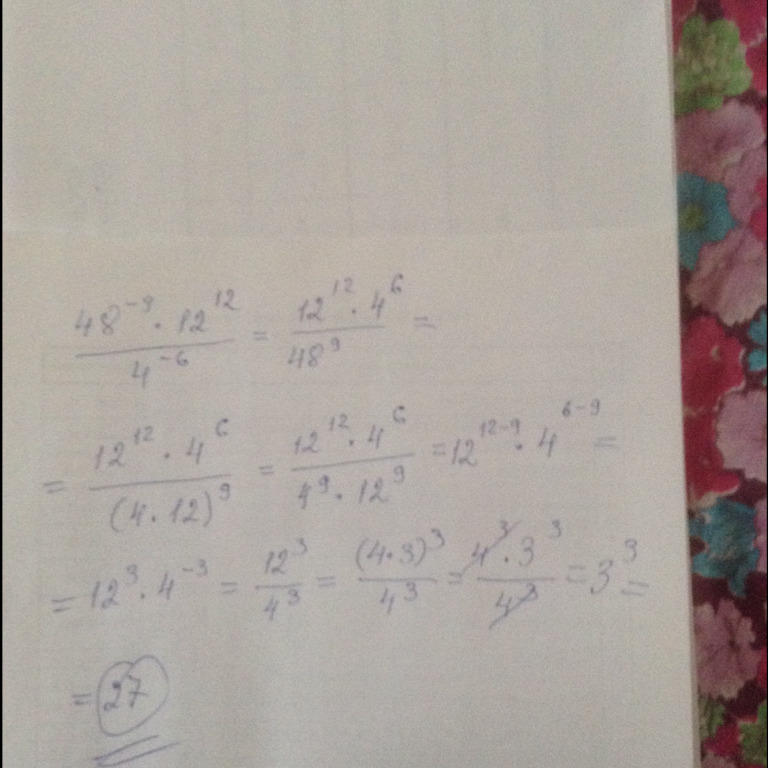 48⁻⁹ · 12¹² / 4⁻⁶ = 12¹² · 4⁶ / 48⁹ =
= 12¹² · 4⁶ / (4 · 12)⁹ = 12¹² · 4⁶ / 4⁹ · 12⁹ = 12¹²⁻⁹ · 4⁶⁻⁹ =
= 12³ · 4⁻³ = 12³ / 4³ = (4 · 3)³ / 4³ = 4³ · 3³ / 4³ = 3³ =
= 27